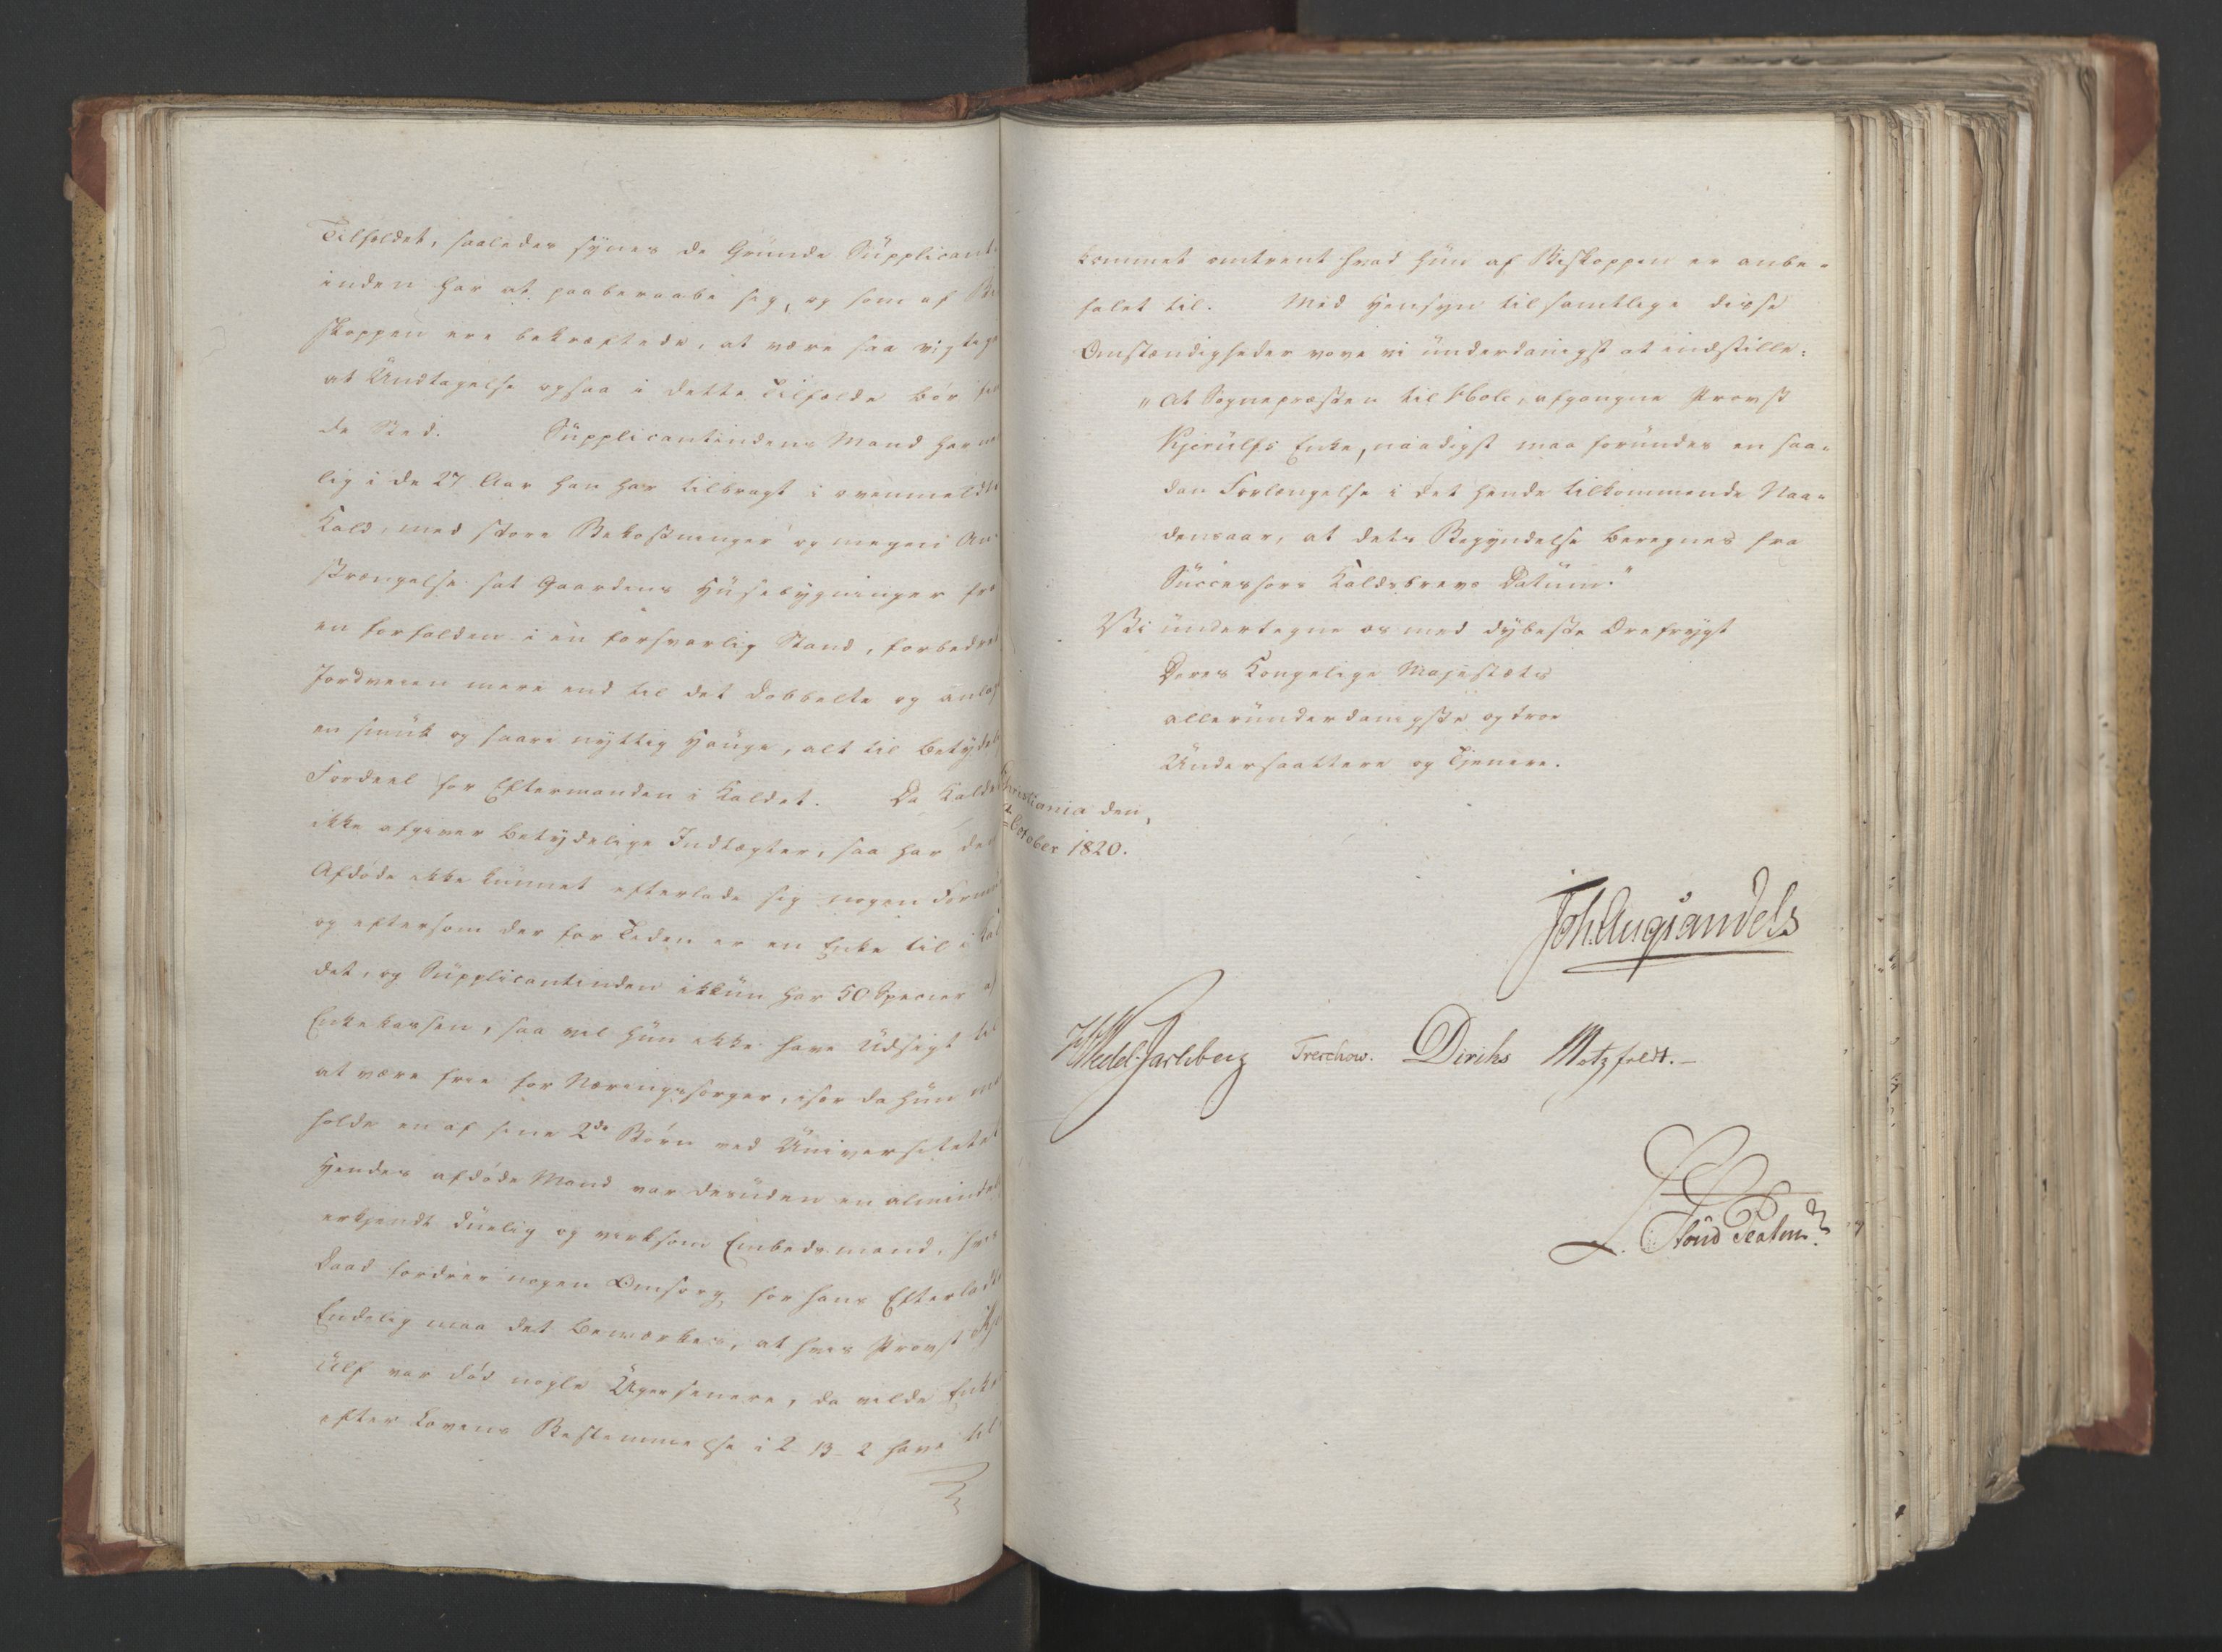 Tilfældet, saaledes synes de Grunde Supplicant-
inden har at paaberaabe sig, og som af Bi
skoppen ere bekræftede, at være saa vigtige
at Undtagelse ogsaa i dette Tilfælde bør fin
de Sted. Supplicantindens Mand har nem
lig i de 27 Aar han har tilbragt i ovenmeldte
Kald, med store Bekostninger og megen An
strængelse sat Gaardens Huusebygninger fra
en forfalden i en forsvarlig Stand, forbedret
Jordveien mere end til det dobbelte og anlagt
en smuk og saare nyttig Hauge, alt til betydelig
Fordeel for Eftermanden i Kaldet. Da Kaldet
ikke afgiver betydelige Indtægter, saa har den
Afdøde ikke kunnet efterlade sig nogen Formue
og eftersom der for Tiden er en Enke til i Kal
det, og Supplicantinden ikkun har 50 Specier af
Enkekassen, saa vil hun ikke have Udsigt til
at være frie for Næringssorger, især da hun maa
holde en af sine 2de Børn ved Universitetet
Hendes afdøde Mand var desuden en almindelig
erkjendt duelig og virksom Embedsmand, hvis
Daad fordrer nogen Omsorg for hans Efterladte
Endelig maa det bemærkes, at hvis Provst Kjer
ulf var død nogle Uger senere, da vilde Enken
efter Lovens Bestemmelse i 2-13-2 have til
kommet omtrent hvad hun af Biskoppen er anbe-
falet til. Med Hensyn til samtlige disse
Omstændigheder vove vi underdanigst at indstille:
"At Sognepræsten til Hole, afgangne Provst
Kjerulfs Enke, naadigst maa forundes en saa-
dan Forlængelse i det hende tilkommende Naa-
densaar, at dets Begyndelse beregnes fra
Successors Kaldsbrevs Datum."
Vi undertegne os med dybeste Ærefrygt
Deres Kongelige Majestæts
allerunderdanigste og troe
Undersaattere og Tjenere.
Christiania den
October 1820.
Joh. Aug Sandels
Wedel Jarlsberg Treschow. Diriks Motzfeldt.